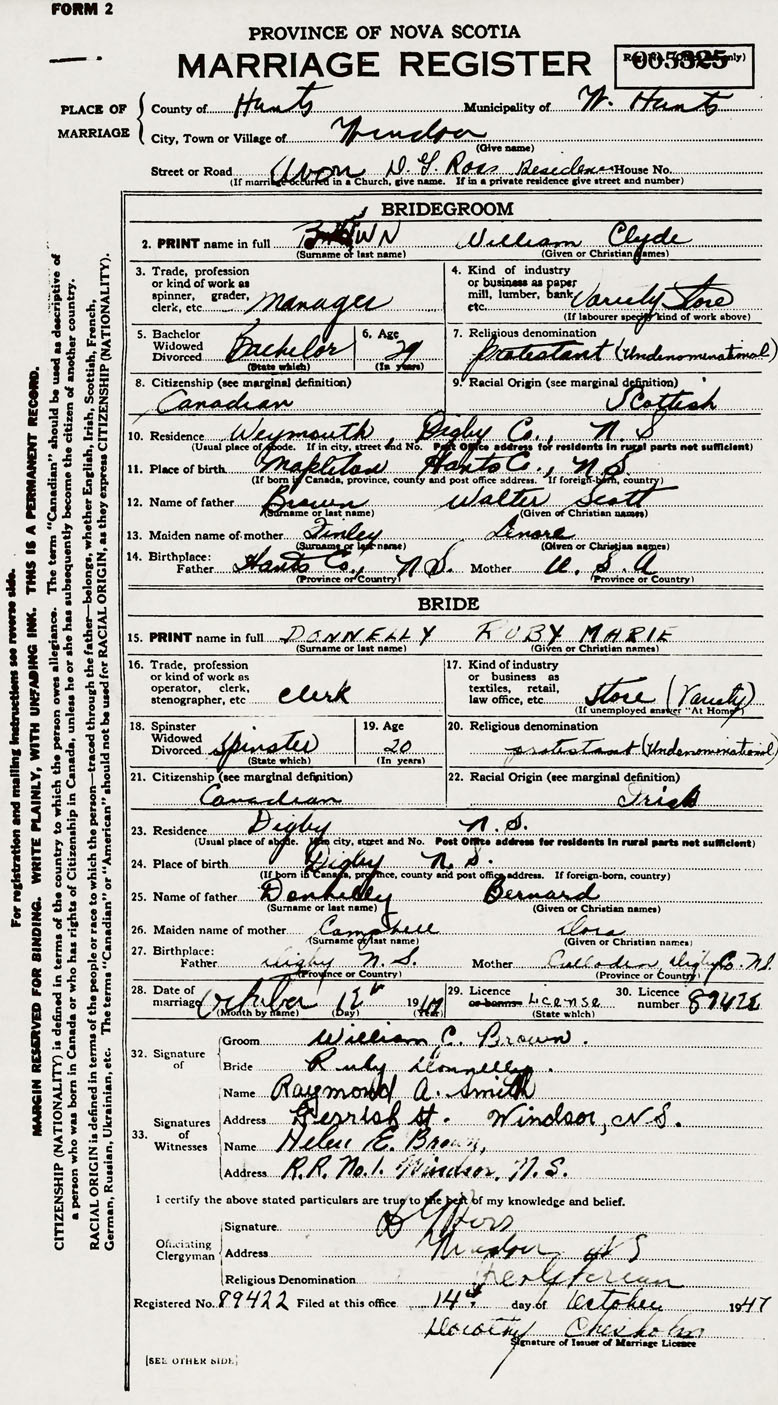 FORM 2
PROVINCE OF NOVA SCOTIA
MARRIAGE REGISTER
005325
PLACE OF MARRIAGE
County of Hants Municipality of W. Hants
City, Town or Village of Windsor
(Give name)
Street or Road Avon D. G. Ross Residence House No.
(If marriage occurred in a Church, give name. If in a private residence give street and number)
BRIDEGROOM
2. PRINT name in full BROWN William Clyde
(Surname or last name) (Given or Christian names)
3. Trade, profession or kind of work as spinner, grader, clerk, etc. Manager
4. Kind of industry or business as paper mill, lumber, bank, etc. Variety Store
(If labourer specify kind of work above)
5. Bachelor Widowed Divorced Bachelor
(State which)
6. Age 29
(In years)
7. Religious denomination
protestant (Undenominational)
8. Citizenship (see marginal definition)
Canadian
9. Racial Origin (see marginal definition)
Scottish
10. Residence Weymouth, Digby Co., N. S
(Usual place of abode. If in city, street and No. Post Office address for residents in rural parts not sufficient)
11. Place of birth Mapleton Hants Co., N S
(If born in Canada, province, county and post office address. If foreign-born, country)
12. Name of father Brown Walter Scott
(Surname or last name) (Given or Christian names)
13. Maiden name of mother Finley Lenore
(Surname or last name) (Given or Christian names)
14. Birthplace:
Father Hants Co., N S. Mother U. S. A
(Province or Country) (Province or Country)
BRIDE
15. PRINT name in full DONNELLY RUBY MARIE
(Surname or last name) (Given or Christian names)
16. Trade, profession or kind of work as operator, clerk, stenographer, etc clerk
17. Kind of industry or business as textiles, retail, law office, etc. Store (Variety)
(If unemployed answer "At Home")
18. Spinster Widowed Divorced Spinster
(State which)
19. Age 20
(In years)
20. Religious denomination
protestant (Undenominational)
21. Citizenship (see marginal definition)
Canadian
22. Racial Origin (see marginal definition)
Irish
23. Residence Digby N. S.
(Usual place of abode. If in city, street and No. Post Office address for residents in rural parts not sufficient)
24. Place of birth Digby N. S.
(If born in Canada, province, county and post office address. If foreign-born, country)
25. Name of father Donnelly Bernard
(Surname or last name) (Given or Christian names)
26. Maiden name of mother Campbell
(Surname or last name) (Given or Christian names)
27. Birthplace:
Father Digby N. S. Mother Culloden, Digby Co. N.S.
(Province or Country) (Province or Country)
28. Date of marriage October 18th 1947
(Month by name) (Day) (Year)
29. Licence or banns License
(State which)
30. Licence number 89422
32. Signature of
Groom William C. Brown.
Bride Ruby Donnelly.
33. Signatures of Witnesses
Name Raymond A. Smith
Address Gerrish St. Windsor, N.S.
Name Helen E. Brown,
Address R.R. No. 1. Windsor, N. S.
I certify the above stated particulars are true to the best of my knowledge and belief.
Officiating Clergyman
Signature D G Ross
Address Windsor N S
Religious Denomination Presbyterian
Registered No. 89422 Filed at this office 14th day of October 1947
Dorothy Chisholm
Signature of Issuer of Marriage Licence
[SEE OTHER SIDE]
For registration and mailing instructions see reverse side.
MARGIN RESERVED FOR BINDING. WRITE PLAINLY, WITH UNFADING INK. THIS IS A PERMANENT RECORD.
CITIZENSHIP (NATIONALITY) is defined in terms of the country to which the person owes allegiance. The term "Canadian" should be used as descriptive of
a person who was born in Canada or who has rights of Citizenship in Canada, unless he or she has subsequently become the citizen of another country.
RACIAL ORIGIN is defined in terms of the people or race to which the person—traced through the father—belongs, whether English, Irish, Scottish, French,
German, Russian, Ukrainian, etc. The terms "Canadian" or "American" should not be used for RACIAL ORIGIN, as they express CITIZENSHIP (NATIONALITY).